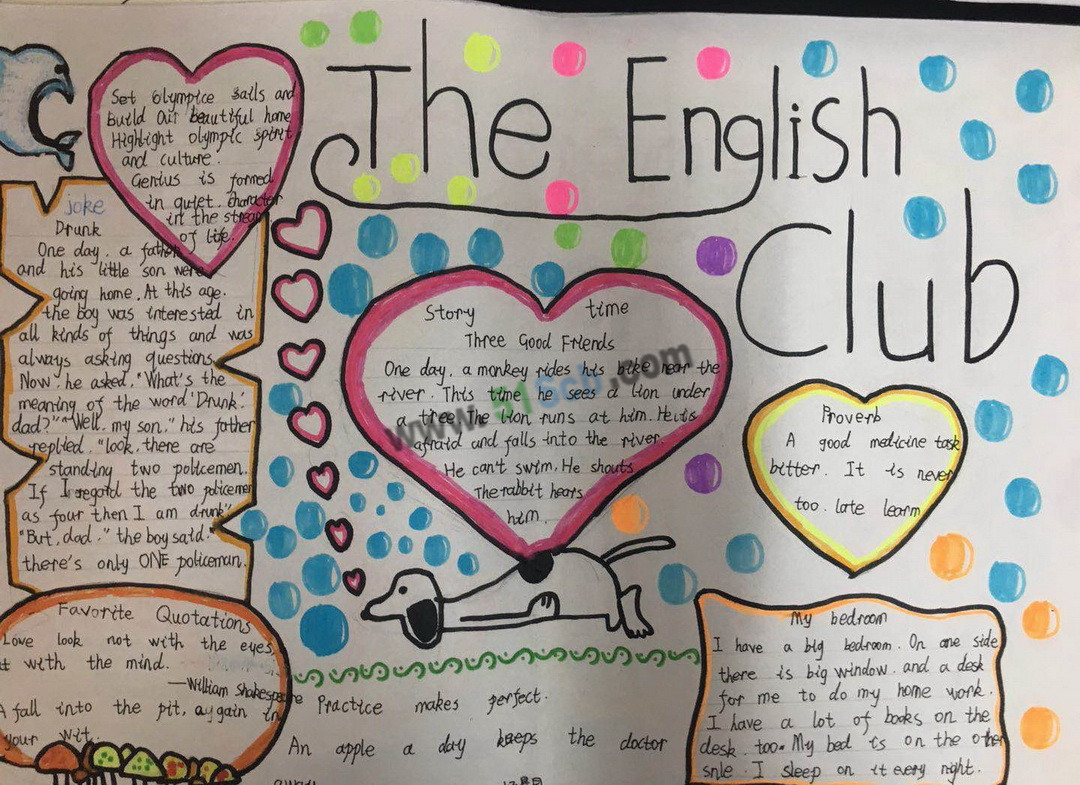 The English
Club
Set Olympice sails and
build Our beautiful home
Highlight olympic spirit
and culture.
Genius is formed
in quiet. character
in the stream
of life.
joke
Drunk
One day. a father
and his little son were
going home. At this age.
the boy was interested in
all kinds of things and was
always asking questions.
Now. he asked. "What's the
meaning of the word 'Drunk'.
dad?" "Well. my son." his father
replied. "look. there are
standing two policemen.
If I regold the two policemen
as four then I am drunk"
"But. dad." the boy said."
there's only ONE policeman.
Story time
Three Good Friends
One day. a monkey rides his bike near the
river. This time he sees a lion under
a tree The lion runs at him. He is
afraid and falls into the river.
He can't swim. He shouts
The rabbit hears
him.
www.51Scb.com
Proverb
A good medicine task
bitter. It is never
too. late learm
Favorite Quotations
Love look not with the eyes
t with the mind.
—William Shakespeare
A fall into the pit, a gain in
your wit.
Practice makes perfect.
An apple a day keeps the doctor
away
My bedroom
I have a big bedroom. On one side
there is big window. and a desk
for me to do my home work.
I have a lot of books on the
desk. too. My bed is on the other
snle. I sleep on it every night.